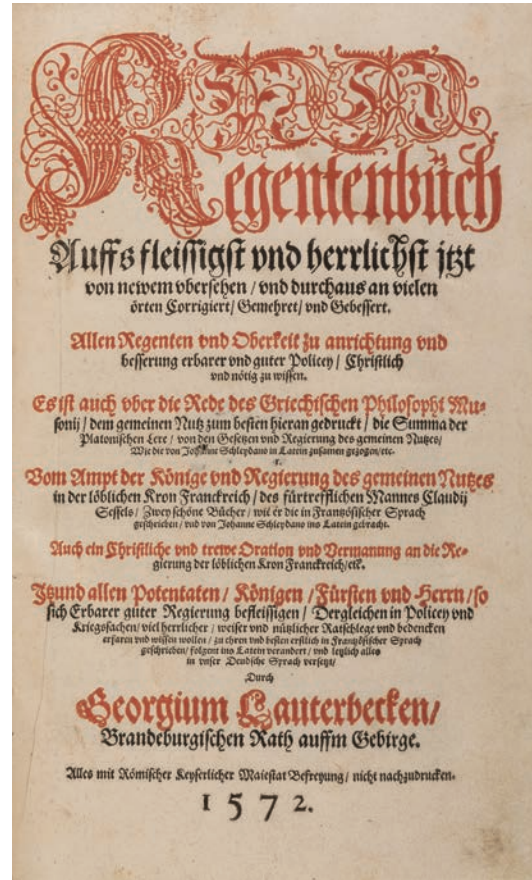 Regentenbuch
Auffs fleissigst vnd herrlichst jtzt
von newem vbersehen / vnd durchaus an vielen
örten Corrigiert / Gemehret / vnd Gebessert.
Allen Regenten vnd Oberkeit zu anrichtung vnd
besserung erbarer vnd guter Policey / Christlich
vnd nötig zu wissen.
Es ist auch vber die Rede des Griechischen Philosophi Mu-
sonij / dem gemeinen Nutz zum besten hieran gedruckt / die Summa der
Platonischen Lere / von den Gesetzen vnd Regierung des gemeinen Nutzes /
Wie die von Johanne Schleydano in Latein zusamen gezogen / etc.
Vom Ampt der Könige vnd Regierung des gemeinen Nutzes
in der löblichen Kron Franckreich / des fürtrefflichen Mannes Claudij
Sessels / Zwey schöne Bücher / wie er die in Frantzösischer Sprach
geschrieben / vnd von Johanne Schleydano ins Latein gebracht.
Auch ein Christliche vnd trewe Oration vnd Vermanung an die Re-
gierung der löblichen Kron Franckreich / etc.
Jtzund allen Potentaten / Königen / Fürsten vnd Herrn / so
sich Erbarer guter Regierung befleissigen / Dergleichen in Policey vnd
Kriegssachen / viel herrlicher / weiser vnd nützlicher Ratschlege vnd bedencken
erfaren vnd wissen wollen / zu ehren vnd besten erstlich in Frantzösischer Sprach
geschrieben / folgent ins Latein verandert / vnd letzlich alles
in vnser Deudsche Sprach versetzt /
Durch
Georgium Lauterbecken /
Brandeburgischen Rath auffm Gebirge.
Alles mit Römischer Keyserlicher Maiestat Befreyung / nicht nachzudrucken.
1572.